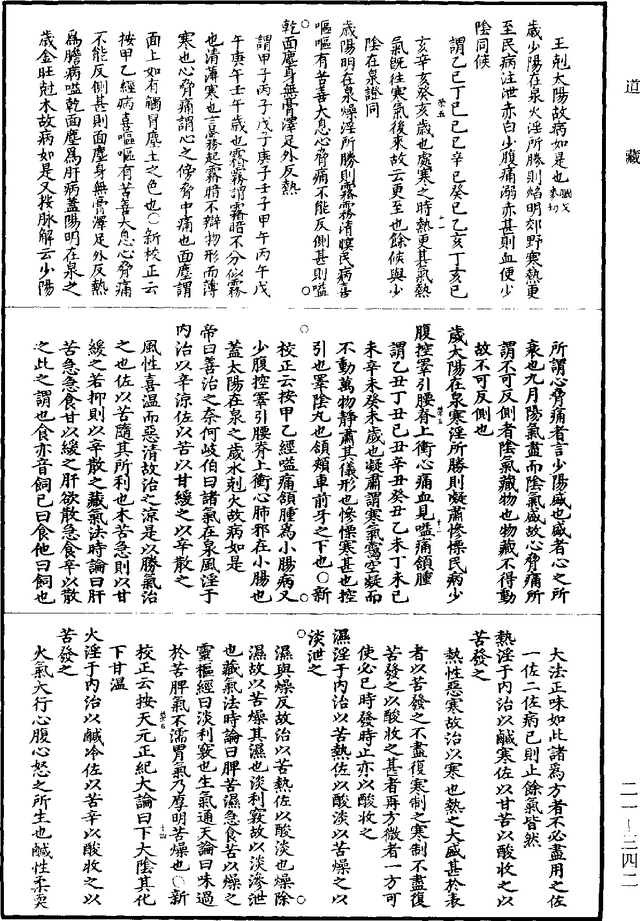 道藏
王剋太陽故病如是也
歲少陽在泉火淫所勝則焰明郊野寒熱更
至民病注泄赤白少腹痛溺赤甚則血便少
陰同候
謂乙巳丁巳己巳辛巳癸巳乙亥丁亥己
亥辛亥癸亥歲也處寒之時熱更其氣熱
氣既往寒氣後來故云更至也餘候與少
陰在泉證同
歲陽明在泉燥淫所勝則霿霧清瞑民病喜
嘔嘔有苦善太息心脅痛不能反側甚則嗌
乾面塵身無膏澤足外反熱
謂甲子丙子戊子庚子壬子甲午丙午戊
午庚午壬午歲也霿霧謂霧暗不分似霧
也清薄寒也言霧起霿暗不辯物形而薄
寒也心脅痛謂心之傍脅中痛也面塵謂
面上如有觸冒塵土之色也○新校正云
按甲乙經病喜嘔嘔有苦善太息心脅痛
不能反側甚則面塵身無膏澤足外反熱
爲膽病嗌乾面塵爲肝病蓋陽明在泉之
歲金旺尅木故病如是又按脉解云少陽
所謂心脅痛者言少陽盛也盛者心之所
表也九月陽氣盡而陰氣盛故心脅痛所
謂不可反側者陰氣藏物也物藏不得動
故不可反側也
歲太陽在泉寒淫所勝則凝肅慘慄民病少
腹控睪引腰脊上衝心痛血見嗌痛頷腫
謂乙丑丁丑己丑辛丑癸丑乙未丁未己
未辛未癸未歲也凝肅謂寒氣靄空凝而
不動萬物静肅其儀形也慘慄寒甚也控
引也睪陰丸也頷頰車前牙之下也○新
校正云按甲乙經嗌痛頷腫爲小腸病又
少腹控睪引腰脊上衝心肺邪在小腸也
蓋太陽在泉之歲水剋火故病如是
帝曰善治之奈何岐伯曰諸氣在泉風淫于
内治以辛涼佐以苦以甘緩之以辛散之
風性喜温而惡清故治之涼是以勝氣治
之也佐以苦隨其所利也木苦急則以甘
緩之苦抑則以辛散之藏氣法時論曰肝
苦急急食甘以緩之肝欲散急食辛以散
之此之謂也食亦音飼巳曰食他曰飼也
大法正味如此諸爲方者不必盡用之佐
一佐二佐病已則止餘氣皆然
熱淫于内治以鹹寒佐以甘苦以酸收之以
苦發之
熱性惡寒故治以寒也熱之大盛甚於表
者以苦發之不盡復寒制之寒制不盡復
苦發之以酸收之甚者再方微者一方可
使必已時發時止亦以酸收之
濕淫于内治以苦熱佐以酸淡以苦燥之以
淡泄之
濕與燥反故治以苦熱佐以酸淡也燥除
濕故以苦燥其濕也淡利竅故以淡滲泄
也藏氣法時論曰脾苦濕急食苦以燥之
靈樞經曰淡利竅也生氣通天論曰味過
於苦脾氣不濡胃氣乃厚明苦燥也○新
校正云按天元正紀大論曰下太陰其化
下甘温
火淫于内治以鹹冷佐以苦辛以酸收之以
苦發之
火氣大行心腹心怒之所生也鹹性柔耎
二一－三四二